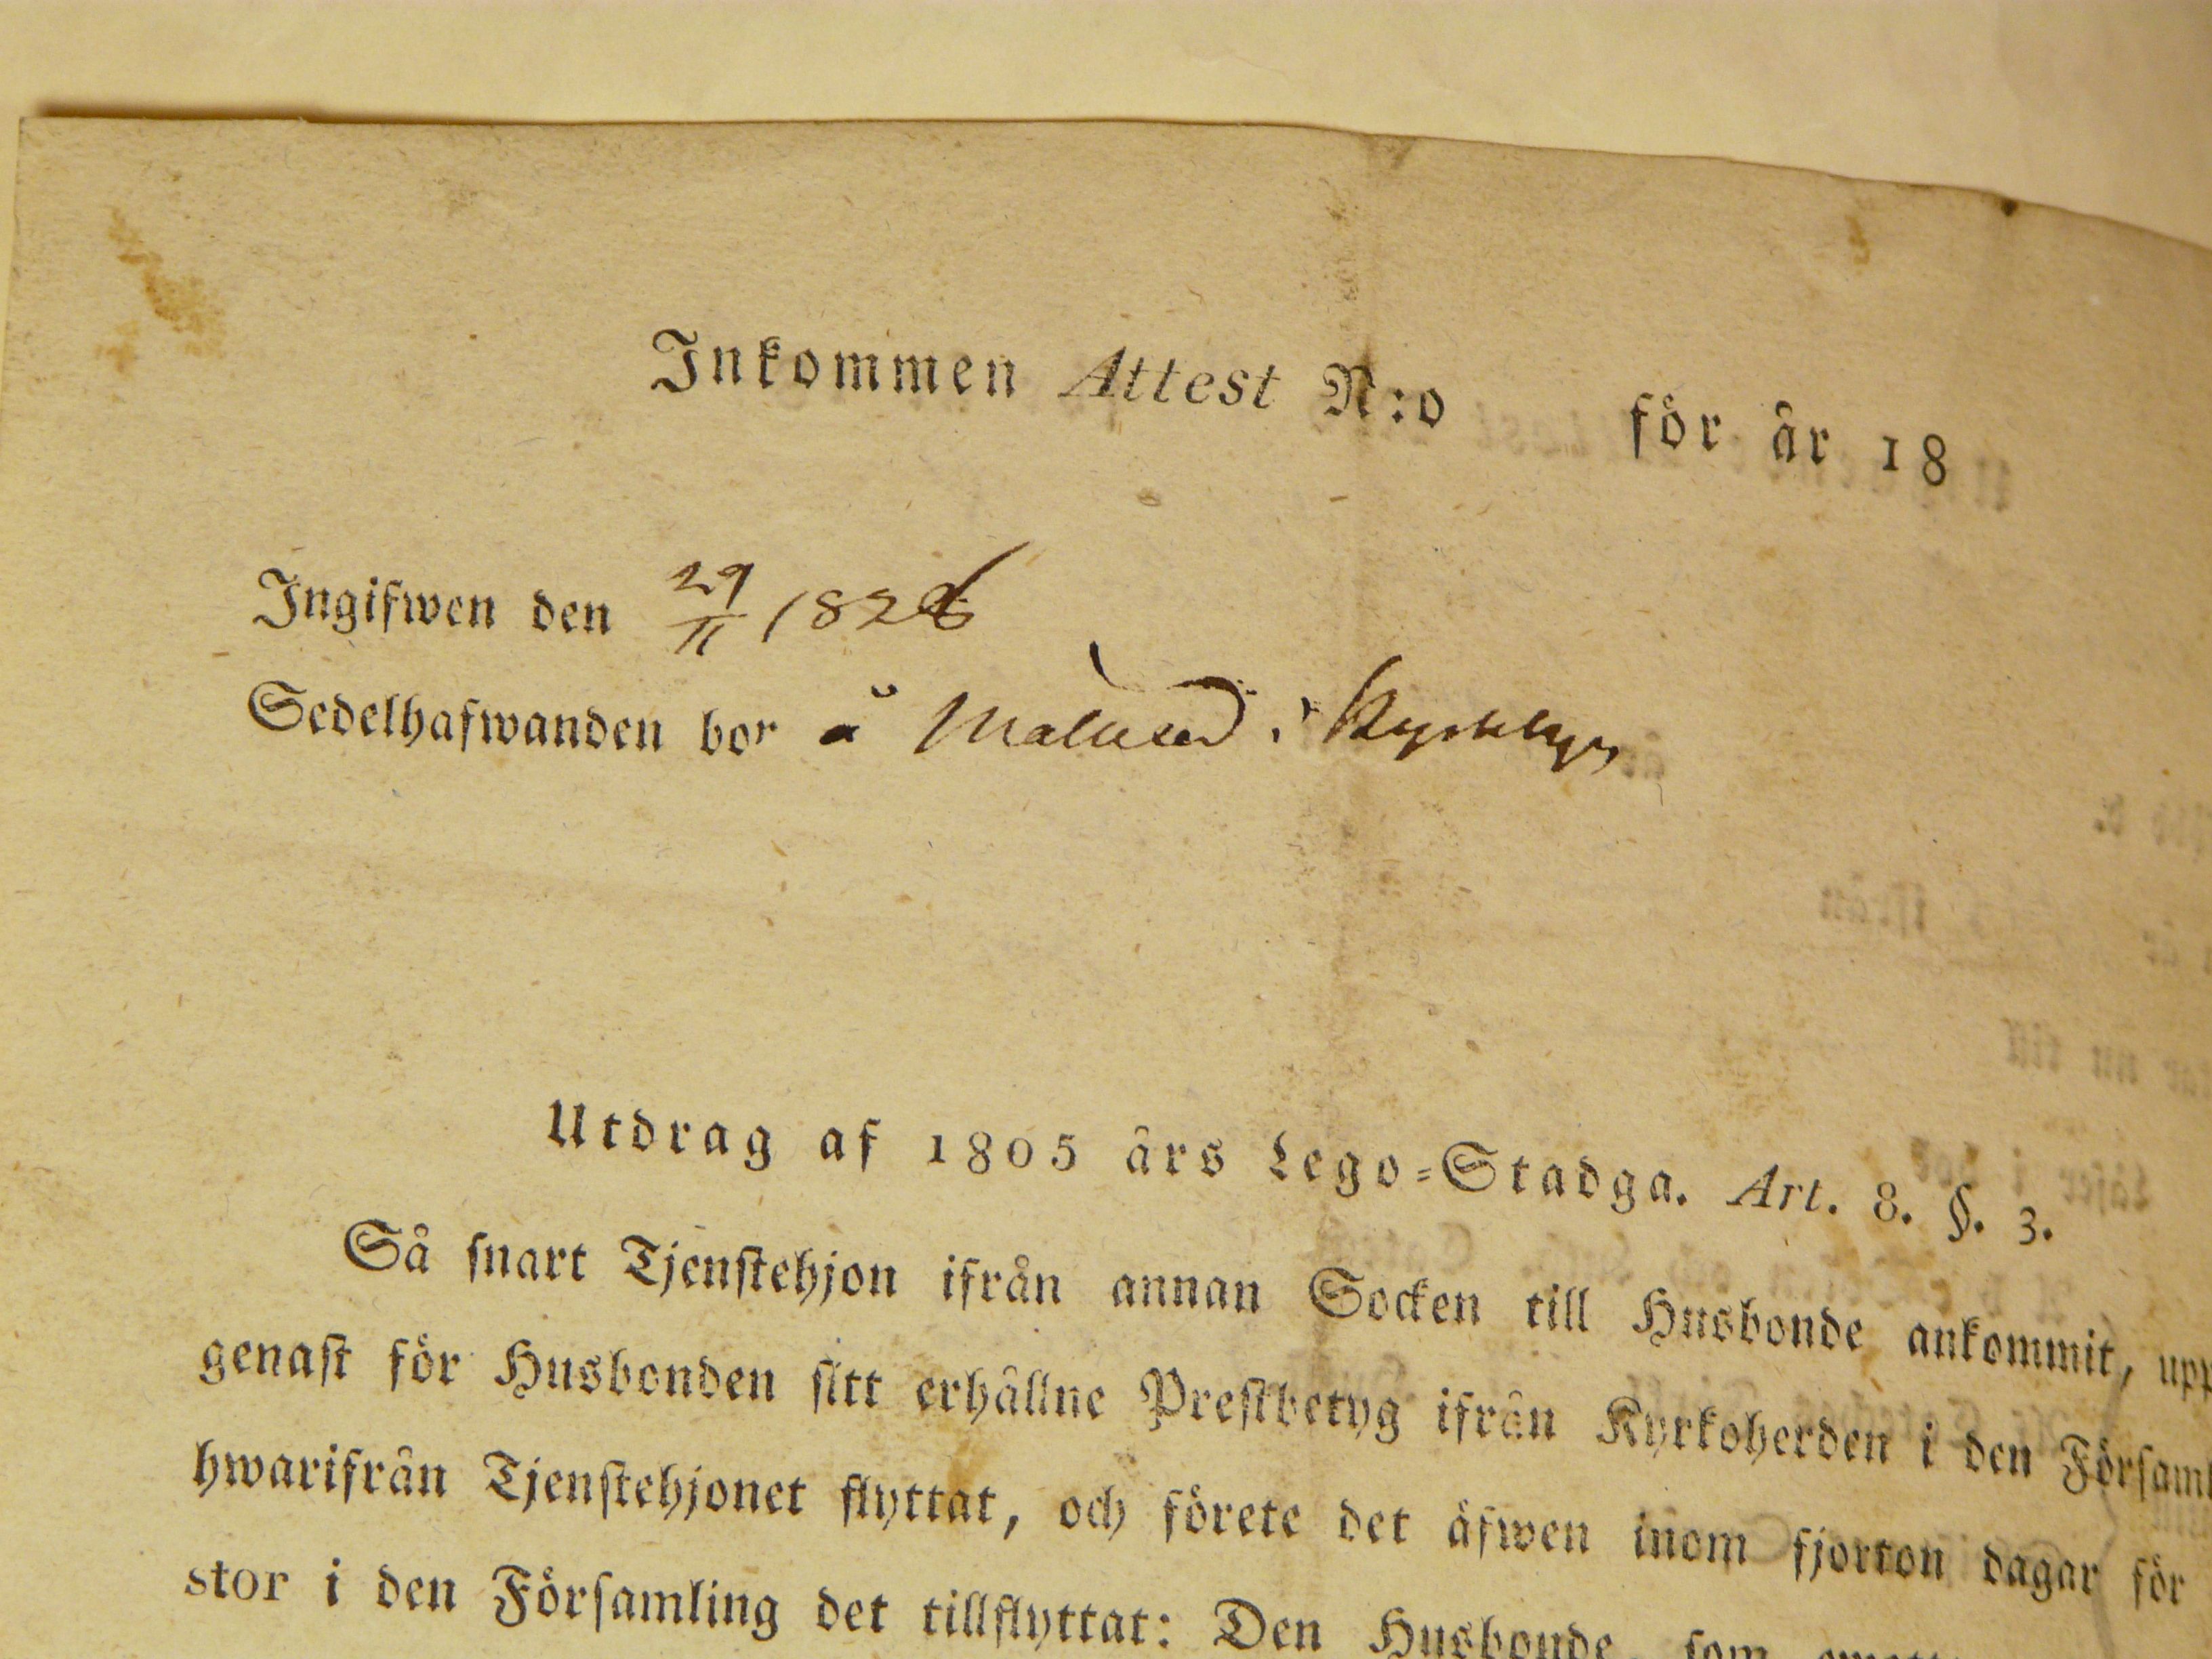 Inkommen Attest N:o för år 18
Ingifwen den 29/11 1826
Sedelhafwanden bor å
Utdrag af 1805 års Lego-Stadga. Art. 8. §. 3.
Så snart Tjenstehjon ifrån annan Socken till Husbonde ankommit, upp
genast för Husbonden sitt erhållne Prestbetyg ifrån Kyrkoherden i den Församl
hwarifrån Tjenstehjonet flyttat, och förete det äfwen inom fjorton dagar för
stor i den Församling det tillflyttat: Den Husbonde, som